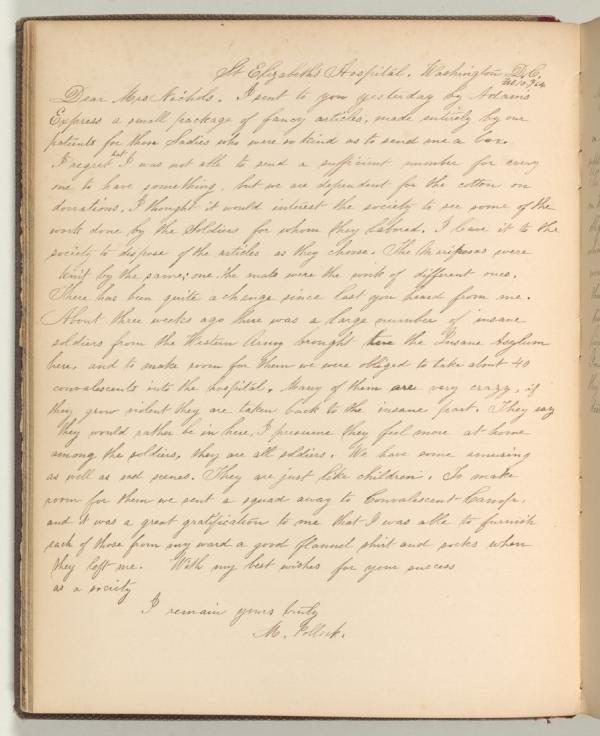 St Elizabeths Hospital. Washington D.C.
Dear Mrs Nichols. I sent to you yesterday by Adams
Express a small package of fancy articles, made entirely by our
patients for those Ladies who were so kind as to send me a box.
I regret that I was not able to send a sufficient number for every
one to have something, but we are dependent for the cotton on
donations. I thought it would interest the society to see some of the
work done by the Soldiers for whom they labored. I leave it to the
society to dispose of the articles as they choose. The Mariposas were
knit by the same one, the mats were the work of different ones.
There has been quite a change since last you heard from me.
About three weeks ago there was a large number of insane
soldiers from the Western Army brought here the Insane Asylum
here, and to make room for them we were obliged to take about 40
convalescents into the hospital. Many of them are very crazy, if
they grow violent they are taken back to the insane part. They say
they would rather be in here, I presume they feel more at home
among the soldiers, they are all soldiers. We have some amusing
as well as sad scenes. They are just like children. To make
room for them we sent a squad away to Convalescent Camp,
and it was a great gratification to me that I was able to furnish
each of those from my ward a good flannel shirt and socks when
they left me. With my best wishes for your success
as a society
I remain yours truly
M. Pollok.